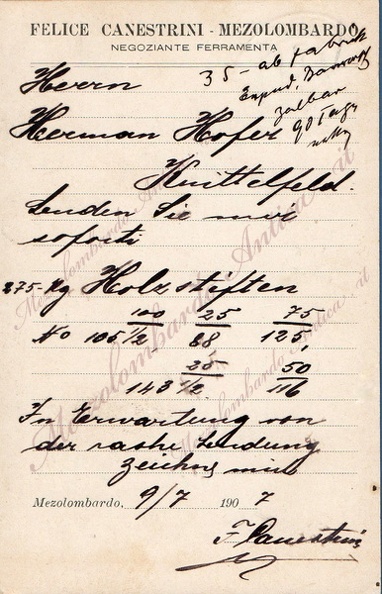 FELICE CANESTRINI - MEZOLOMBARDO
NEGOZIANTE FERRAMENTA
35 - ab Fabrik
zalbar
90 Tage
Herrn
Herman Hofer
Knittelfeld.
Senden Sie mir
soforti
275 Kg Holzstiften
100 25 75
No 105 1/2 88 125
25 50
143 1/2 116
In Erwartung von
der rashe Sendung
zeichne mich
Mezolombardo, 9/7 1907
F. Canestrini
Mezolombardo Antica .it